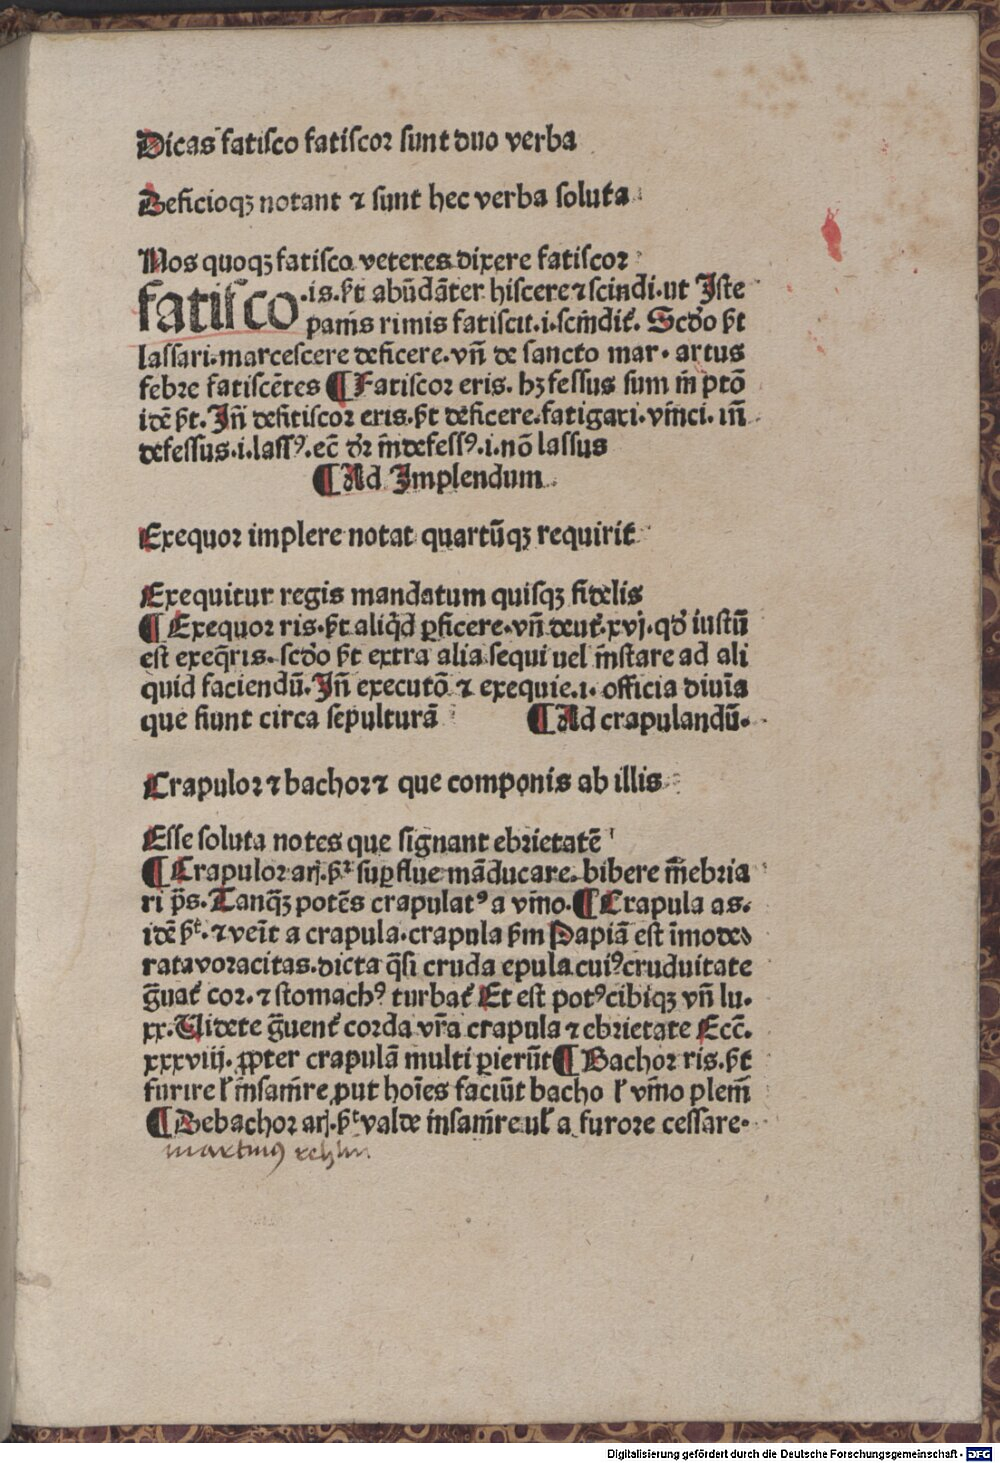 Dicas fatiſco fatiſcoꝛ ſunt duo verba
Deficioqꝫ notant ⁊ ſunt hec verba ſoluta
Nos quoqꝫ fatiſco veteres dixere fatiſcoꝛ
fatiſco .is.ſt̄ abūdāter hiſcere ⁊ ſcindi.ut Iſte
panīs rimis fatiſcit.i.ſcindit᷑. Scd̓o ſt̄
laſſari.marceſcere deficere.vn̄ de ſancto mar. artus
febꝛe fatiſcētes ¶ Fatiſcoꝛ eris. hꝫ feſſus ſum in̄ ptō
idē ſt̄. In̄ defitiſcoꝛ eris.ſt̄ deficere.fatigari.vinci. in̄
defeſſus.i.laſſꝰ.ec̄ dꝛ̄ indefeſſꝰ.i.nō laſſus
¶ Ad Implendum
Exequoꝛ implere notat quartūqꝫ requirit
Exequitur regis mandatum quiſqꝫ fidelis
¶ Exequoꝛ ris.ſt̄ aliqd̄ ꝑficere.vn̄ deut᷑.xvj.qd̓ iuſtū
eſt exeq̄ris. ſcd̓o ſt̄ extra alia ſequi uel inſtare ad ali
quid faciendū. In̄ executō ⁊ exequie.i. officia diuīa
que fiunt circa ſepulturā ¶ Ad crapulandū.
Crapuloꝛ ⁊ bachoꝛ ⁊ que componis ab illis
Eſſe ſoluta notes que ſignant ebꝛietatē
¶ Crapuloꝛ arj.ſt̄ ſuꝑflue māducare. bibere inebꝛia
ri p̄s. Tanqꝫ potēs crapulatꝰ a vino. ¶ Crapula as.
idē ſt̄. ⁊ veīt a crapula.crapula ſm̄ Papiā eſt īmode
rata voracitas.dicta qſ̄i cruda epula cuiꝰ cruduitate
ḡuat᷑ coꝛ. ⁊ ſtomachꝰ turbat᷑ Et eſt potꝰ cibiqꝫ vn̄ lu.
xx. Uidete ḡuent᷑ coꝛda vr̄a crapula ⁊ ebꝛietate Ecc̄.
xxxviij. ꝓpter crapulā multi ꝑierūt ¶ Bachoꝛ ris.ſt̄
furire ł inſanire ꝓut hoīes faciūt bacho ł vino pleni
¶ Debachoꝛ arj.ſt̄ valde inſanire uł a furoꝛe ceſſare.
martinꝰ
Digitalisierung gefördert durch die Deutsche Forschungsgemeinschaft - DFG